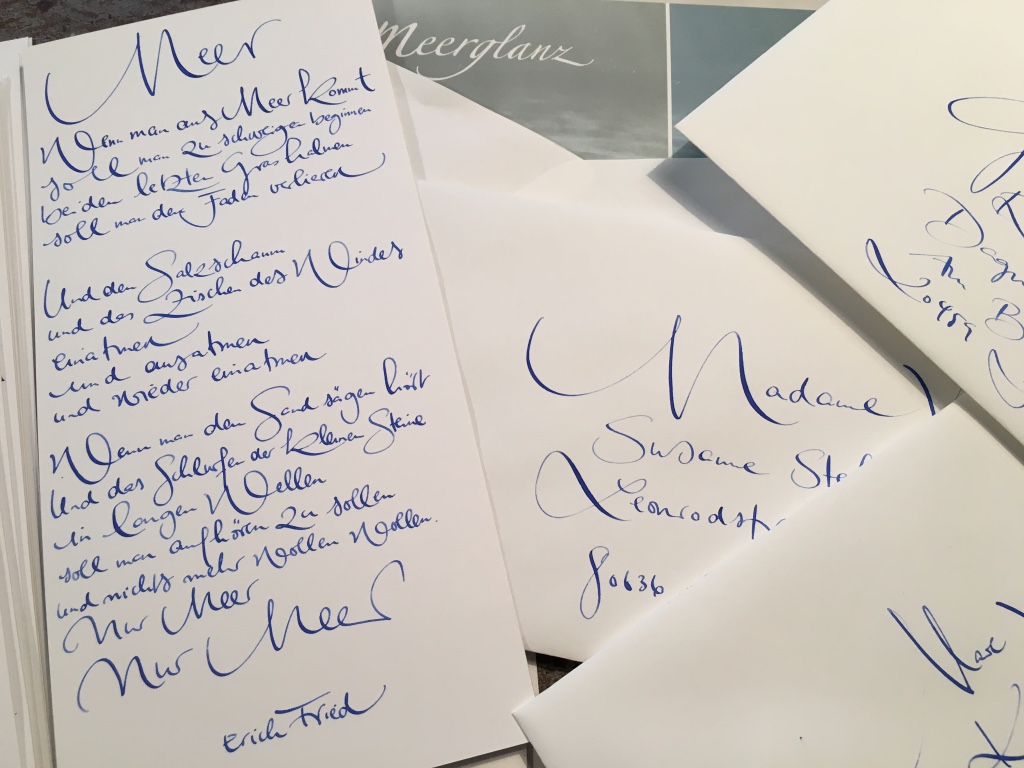 Meer
Wenn man ans Meer kommt
soll man zu schweigen beginnen
bei den letzten Grashalmen
soll man den Faden verlieren
Und den Salzschaum
und das Zischen des Windes
einatmen
und ausatmen
und wieder einatmen
Wenn man den Sand sägen hört
Und das Schlurfen der kleinen Steine
in langen Wellen
soll man aufhören zu sollen
und nichts mehr wollen wollen.
Nur Meer
Nur Meer
Erich Fried
Meerglanz
Madame
Susanne
Leonrodstr
80636
Dagm
Am B
20459